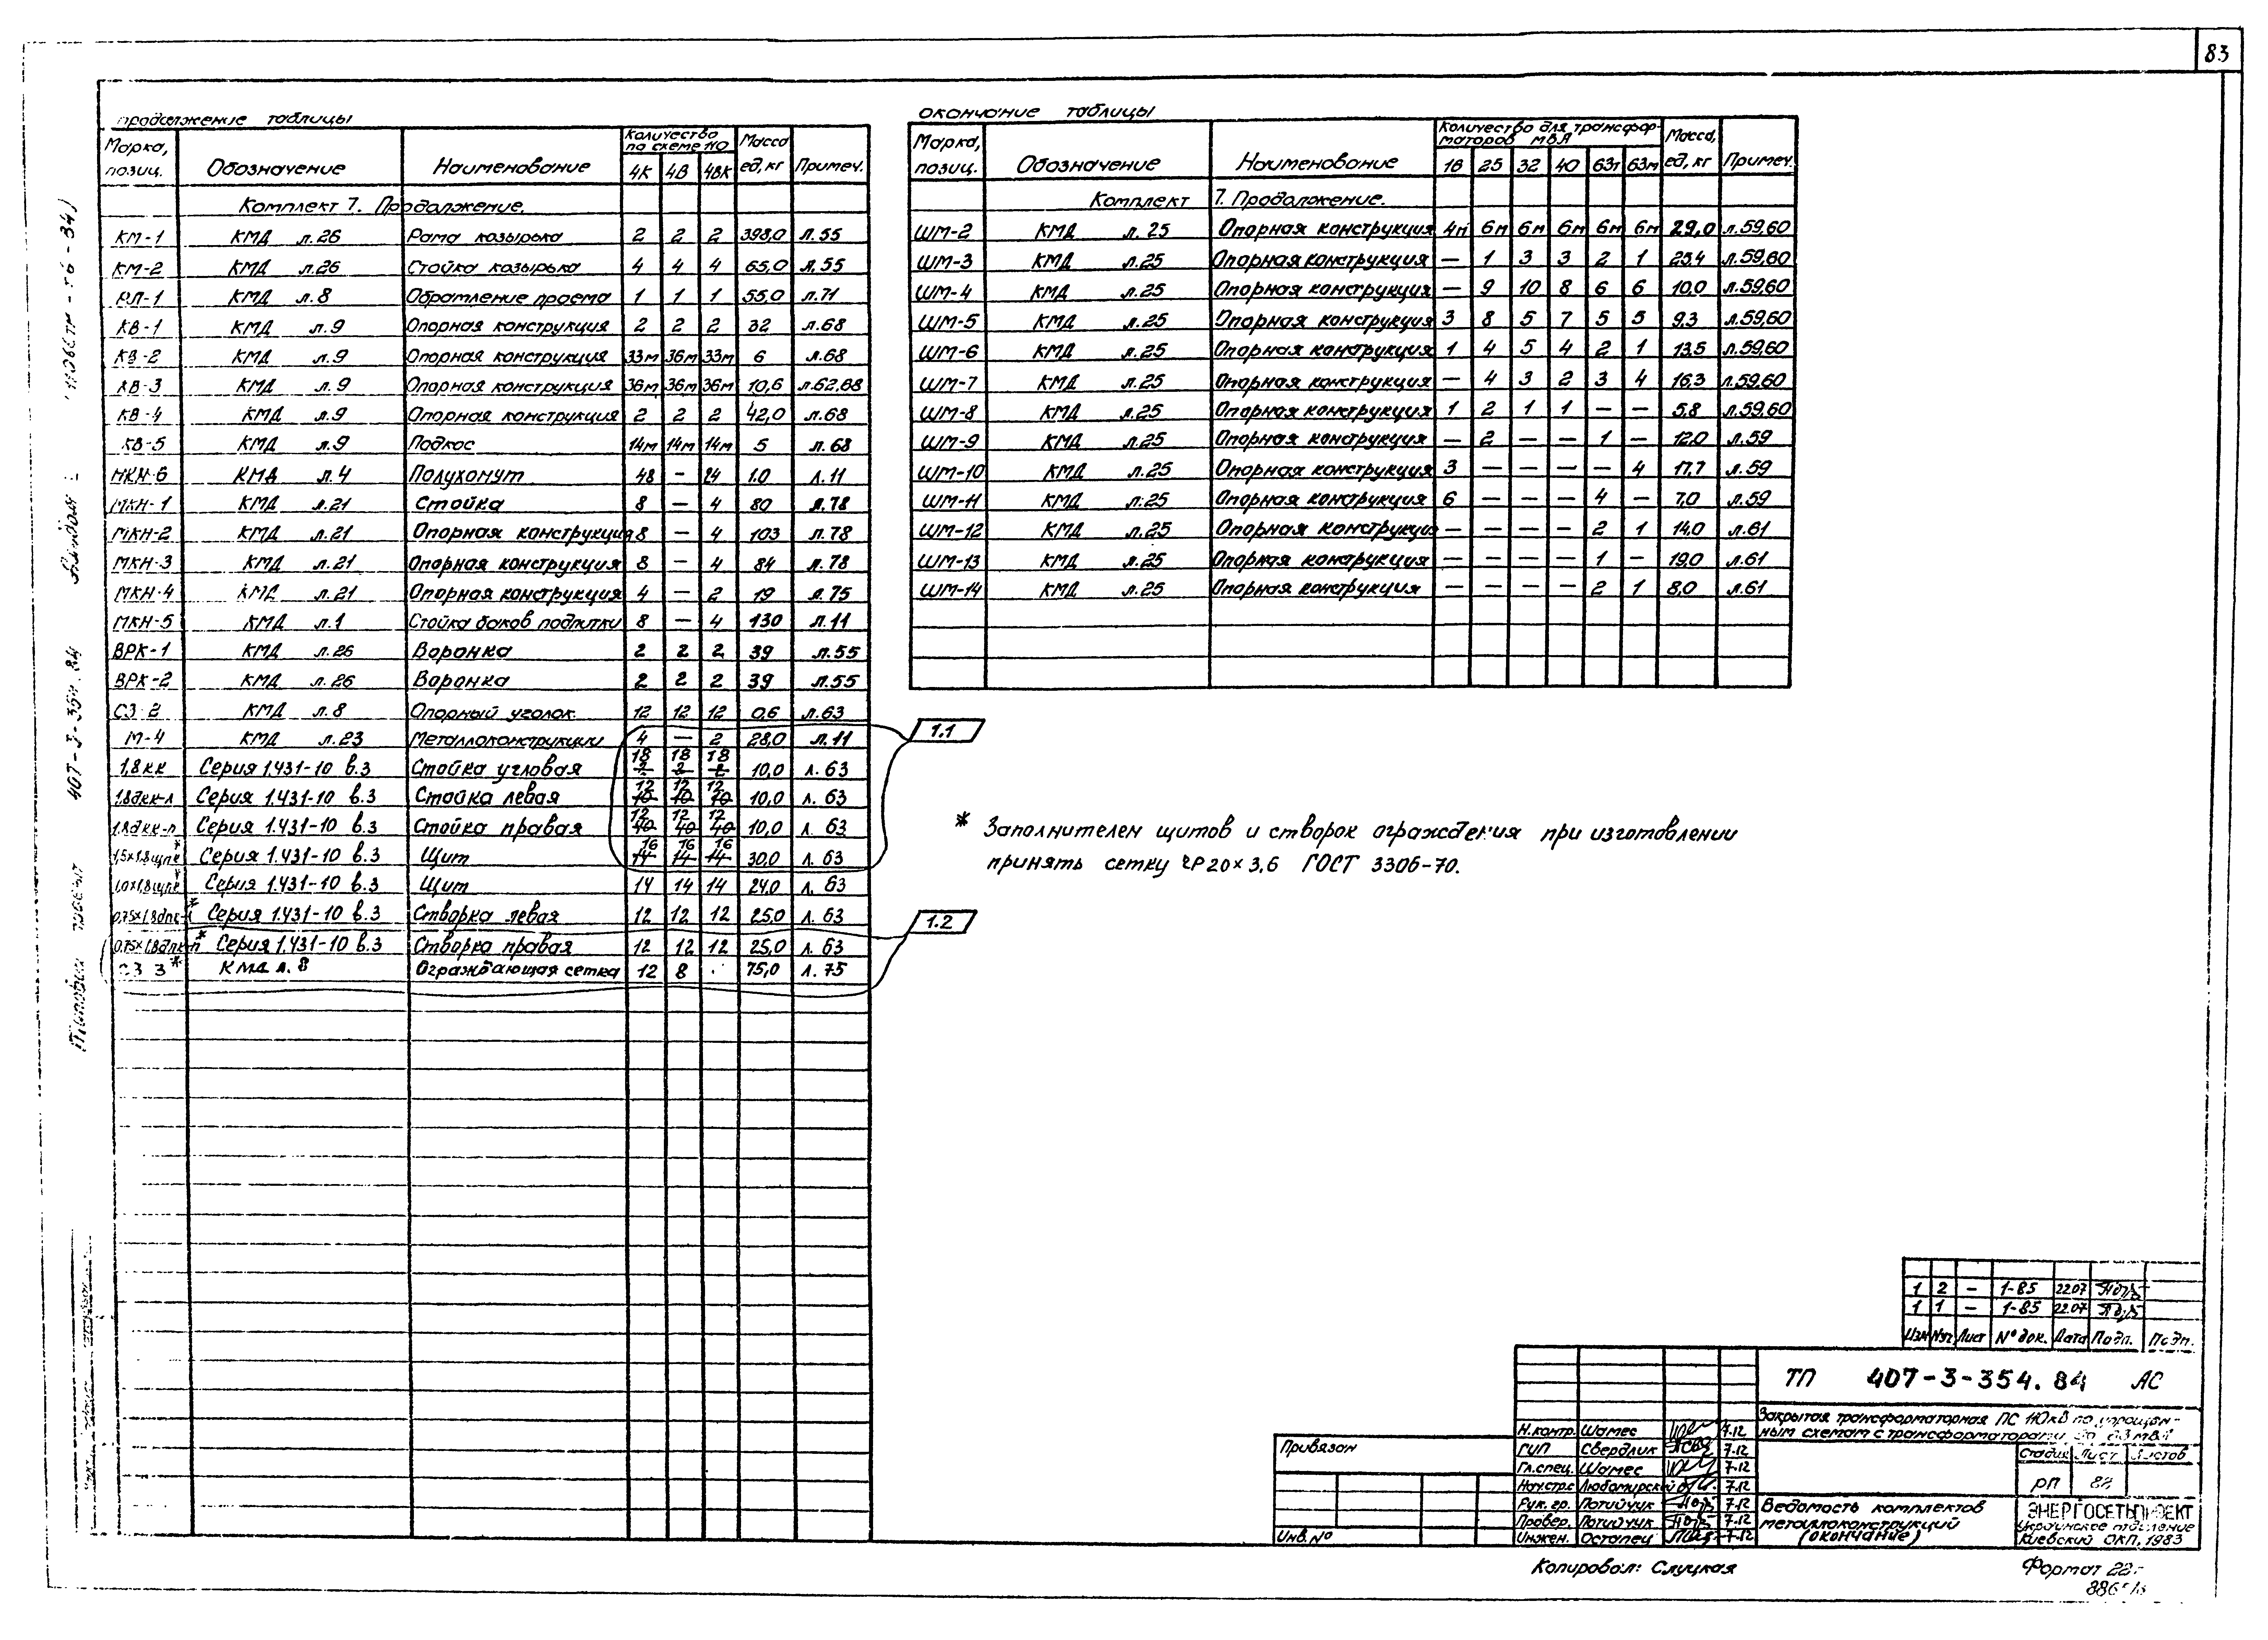 83
продолжение таблицы
Марка, позиц. Обозначение Наименование Количество по схеме 110 4К 4В 4ВК Масса ед, кг Примеч.
Комплект 7. Продолжение.
КМ-1 КМД л.26 Рама козырька 2 2 2 398,0 л.55
КМ-2 КМД л.26 Стойка козырька 4 4 4 65,0 л.55
КМД л.8 Обрамление проема 1 1 1 55,0 л.71
КВ-1 КМД л.9 Опорная конструкция 2 2 2 32 л.68
КВ-2 КМД л.9 Опорная конструкция 33м 36м 33м 6 л.68
КВ-3 КМД л.9 Опорная конструкция 36м 36м 36м 10,6 л.62,68
КВ-4 КМД л.9 Опорная конструкция 2 2 2 42,0 л.68
КВ-5 КМД л.9 Подкос 14м 14м 14м 5 л.68
МКН-6 КМД л.4 Полухомут 48 — 24 1.0 л.11
МКН-1 КМД л.21 Стойка 8 — 4 80 л.78
МКН-2 КМД л.21 Опорная конструкция 8 — 4 103 л.78
МКН-3 КМД л.21 Опорная конструкция 8 — 4 84 л.78
МКН-4 КМД л.21 Опорная конструкция 4 — 2 19 л.75
МКН-5 КМД л.1 Стойка баков подпитки 8 — 4 130 л.11
ВРК-1 КМД л.26 Воронка 2 2 2 39 л.55
ВРК-2 КМД л.26 Воронка 2 2 2 39 л.55
СЗ-2 КМД л.8 Опорный уголок 12 12 12 0,6 л.63
М-4 КМД л.23 Металлоконструкции 4 — 2 28,0 л.11
1,8кк Серия 1.431-10 в.3 Стойка угловая 18 18 18 2 2 2 10,0 л. 63
1,8дкк-л Серия 1.431-10 в.3 Стойка левая 12 12 12 10 10 10 10,0 л. 63
1,8дкк-п Серия 1.431-10 в.3 Стойка правая 12 12 12 40 40 40 10,0 л. 63
1,5×1,8щпк* Серия 1.431-10 в.3 Щит 16 16 16 14 14 14 30,0 л. 63
1,0×1,8щпк* Серия 1.431-10 в.3 Щит 14 14 14 24,0 л. 63
0,75×1,8дпк-л* Серия 1.431-10 в.3 Створка левая 12 12 12 25,0 л. 63
0,75×1,8дпк-п* Серия 1.431-10 в.3 Створка правая 12 12 12 25,0 л. 63
СЗ 3* КМД л. 8 Ограждающая сетка 12 8 75,0 л. 75
окончание таблицы
Марка, позиц. Обозначение Наименование Количество для трансформаторов МВА 16 25 32 40 63т 63м Масса, ед, кг Примеч.
Комплект 7. Продолжение.
ШМ-2 КМД л. 25 Опорная конструкция 4м 6м 6м 6м 6м 6м 29,0 л.59,60
ШМ-3 КМД л.25 Опорная конструкция — 1 3 3 2 1 23,4 л.59,60
ШМ-4 КМД л.25 Опорная конструкция — 9 10 8 6 6 10,0 л.59,60
ШМ-5 КМД л.25 Опорная конструкция 3 8 5 7 5 5 9,3 л.59,60
ШМ-6 КМД л.25 Опорная конструкция 1 4 5 4 2 1 13,5 л.59,60
ШМ-7 КМД л.25 Опорная конструкция — 4 3 2 3 4 16,3 л.59,60
ШМ-8 КМД л.25 Опорная конструкция 1 2 1 1 — — 5,8 л.59,60
ШМ-9 КМД л.25 Опорная конструкция — 2 — — 1 — 12,0 л.59
ШМ-10 КМД л.25 Опорная конструкция 3 — — — — 4 17,7 л.59
ШМ-11 КМД л.25 Опорная конструкция 6 — — — 4 — 7,0 л.59
ШМ-12 КМД л.25 Опорная конструкция — — — — 2 1 14,0 л.61
ШМ-13 КМД л.25 Опорная конструкция — — — — 1 — 19,0 л.61
ШМ-14 КМД л.25 Опорная конструкция — — — — 2 1 8,0 л.61
1.1
* Заполнителем щитов и створок ограждения при изготовлении
принять сетку ЧР 20×3,6 ГОСТ 3306-70.
1.2
407-3-354.84
1 2 — 1-85 22.07
1 1 — 1-85 22.07
Изм Nуч Лист N° док. Дата Подп. Подп.
ТП 407-3-354.84 АС
Закрытая трансформаторная ПС 110кВ по упрощен-
ным схемам с трансформаторами до 63 МВА
Стадия Лист Листов
РП 82
Ведомость комплектов
металлоконструкций
(окончание)
ЭНЕРГОСЕТЬПРОЕКТ
Украинское отделение
Киевский ОКП, 1983
Н.контр. Шамес 7.12
ГИП Свердлик 7.12
Гл.спец. Шамес 7.12
Нач.стр.с Любомирский 7.12
Рук. гр. Потийчук 7.12
Провер. Потийчук 7.12
Инжен. Остапец 7.12
Привязан
Инв. N°
Копировал: Слуцкая
Формат 22